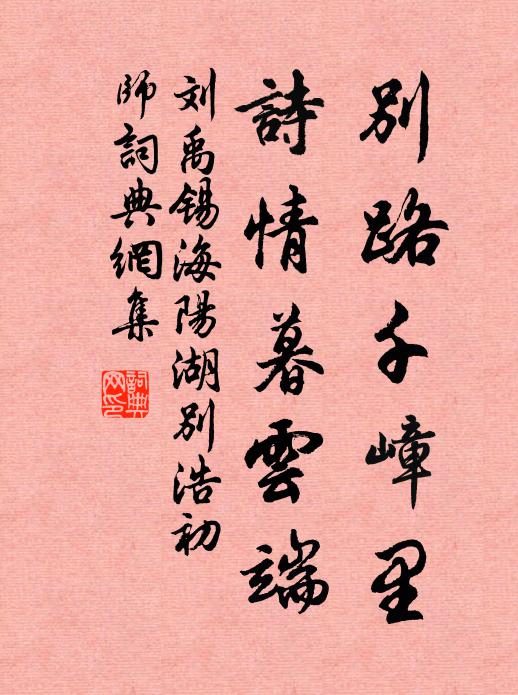 别路千嶂里
詩情暮雲端
刘禹锡海陽湖别浩初
師詞典網集
詞典
网印